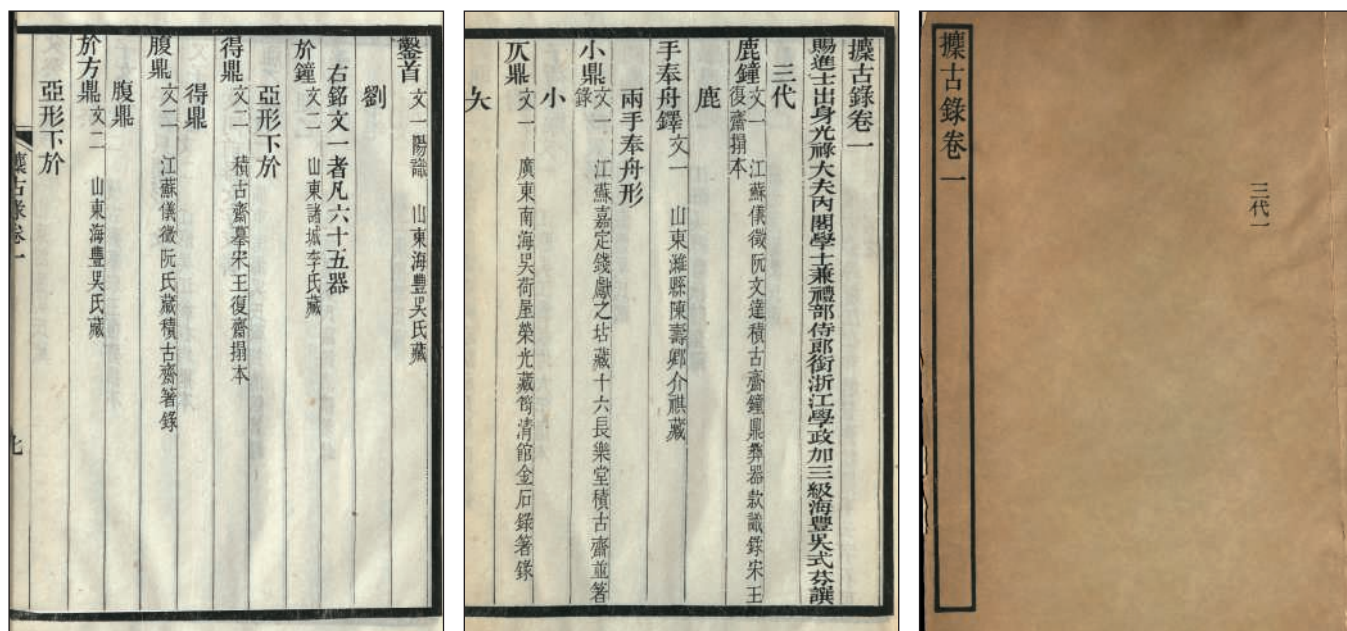 攈古錄卷一
三代一
攈古錄卷一
賜進士出身光祿大夫內閣學士兼禮部侍郎銜浙江學政加三級海豐吳式芬譔
三代
鹿鐘 文一 江蘇儀徵阮文達積古齋鐘鼎彝器款識錄宋王復齋搨本
鹿
手奉舟鐸 文一 山東濰縣陳壽卿介祺藏
兩手奉舟形
小鼎 文一 江蘇嘉定錢獻之坫藏十六長樂堂積古齋並著錄
小
仄鼎 文一 廣東南海吳荷屋榮光藏筠清館金石錄著錄
夨
鑿首 文一陽識 山東海豐吳氏藏
劉
右銘文一者凡六十五器
於鐘 文二 山東諸城李氏藏
亞形下於
得鼎 文二 積古齋摹宋王復齋搨本
得鼎
腹鼎 文二 江蘇儀徵阮氏藏積古齋著錄
腹鼎
於方鼎 文二 山東海豐吳氏藏
亞形下於
攈古錄卷一